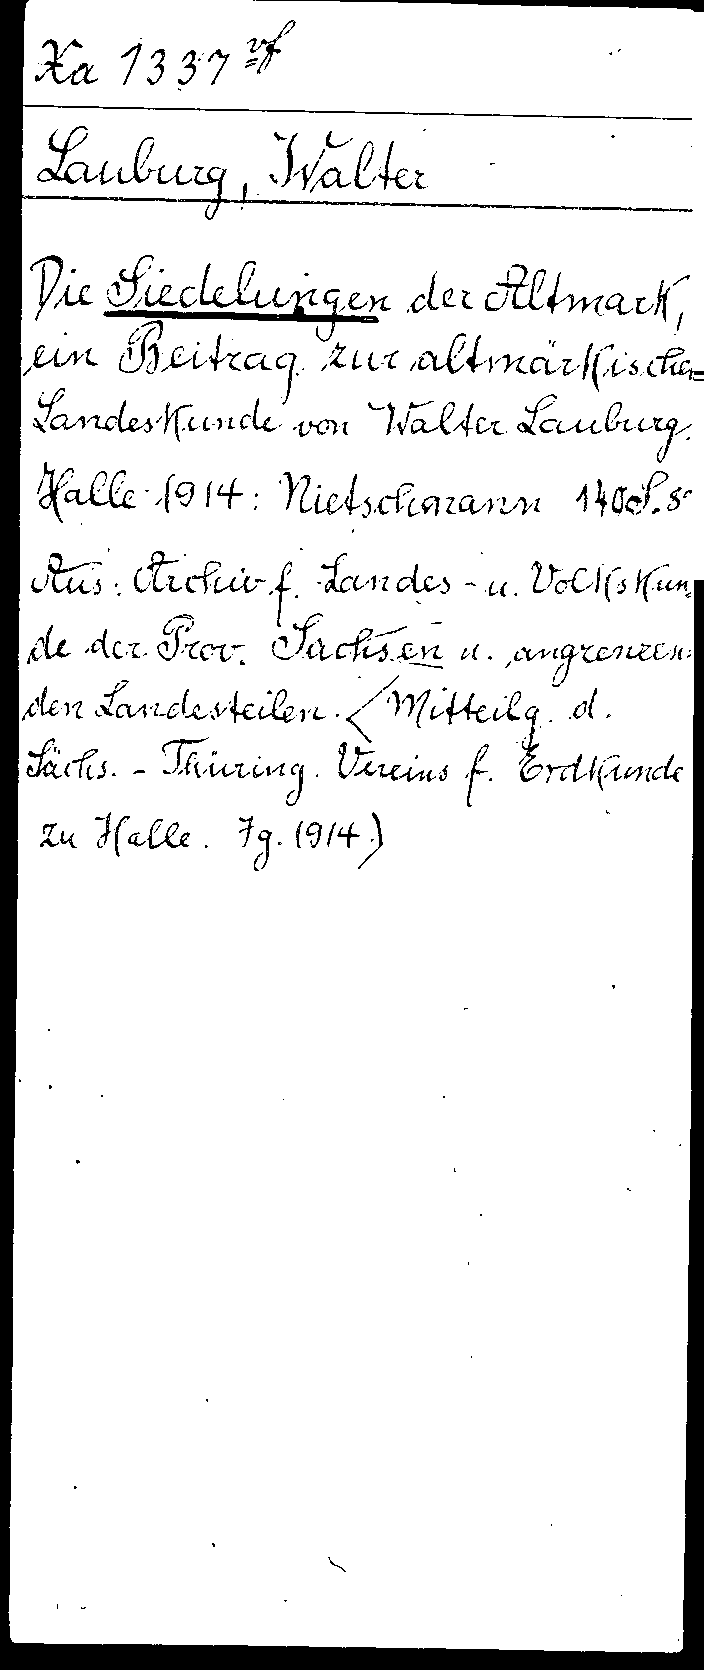 Xa 1337 vf
Lauburg, Walter
Die Siedelungen der Altmark,
ein Beitrag zur altmärkischen
Landeskunde von Walter Lauburg.
Halle 1914: Nietschmann 140 S. 8°
Aus: Archiv f. Landes- u. Volkskun-
de der Prov. Sachsen u. angrenzen-
den Landesteilen. (Mitteilg. d.
Sächs.-Thüring. Vereins f. Erdkunde
zu Halle. Jg. 1914.)